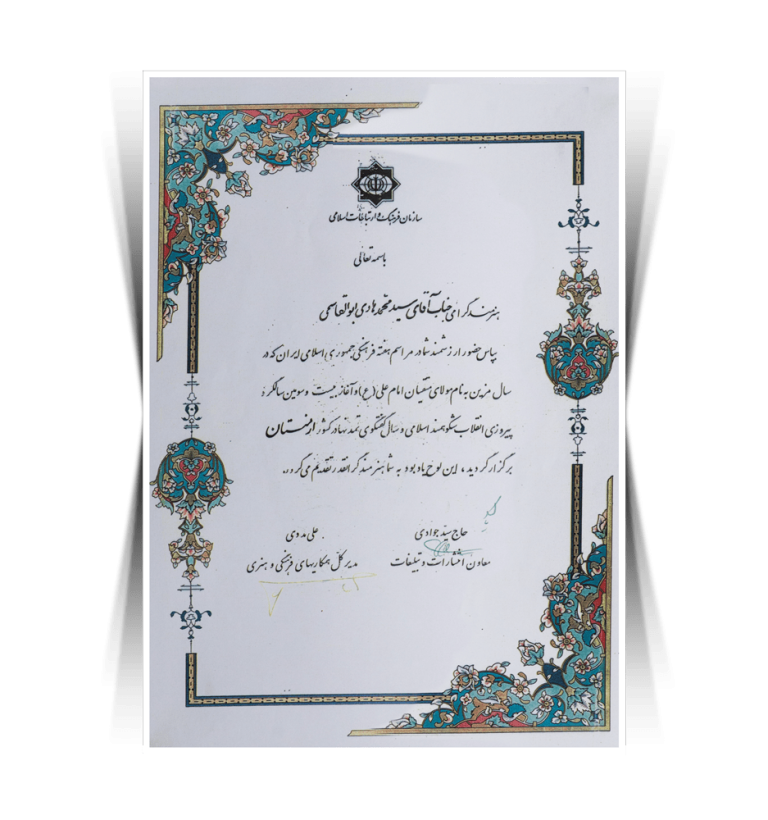 سازمان فرهنگ و ارتباطات اسلامی
باسمه تعالی
هنرمند گرامی جناب آقای سید محمد هادی ابوالقاسمی
بپاس حضور ارزشمند شما در مراسم هفته فرهنگی جمهوری اسلامی ایران که در
سال مزین به نام مولای متقیان امام علی (ع) و آغاز بیست و سومین سالگرد
پیروزی انقلاب شکوهمند اسلامی و سال گفتگوی تمدنها در کشور ارمنستان
برگزار گردید، این لوح یادبود به شما هنرمند گرانقدر تقدیم می گردد.
حاج سید جوادی
معاون انتشارات و تبلیغات
علی مددی
مدیر کل همکاریهای فرهنگی و هنری